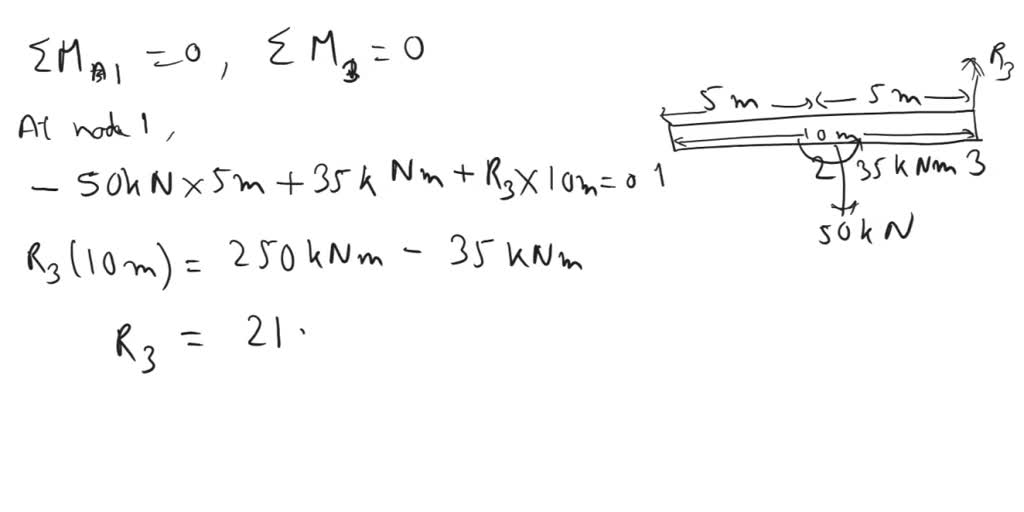 ΣM_{A1} = 0, ΣM_3 = 0
At node 1,
- 50kN × 5m + 35k Nm + R_3 × 10m = 0
R_3 (10m) = 250kNm - 35kNm
R_3 = 21.
R_3
5m 5m
10m
1 2 35kNm 3
50kN